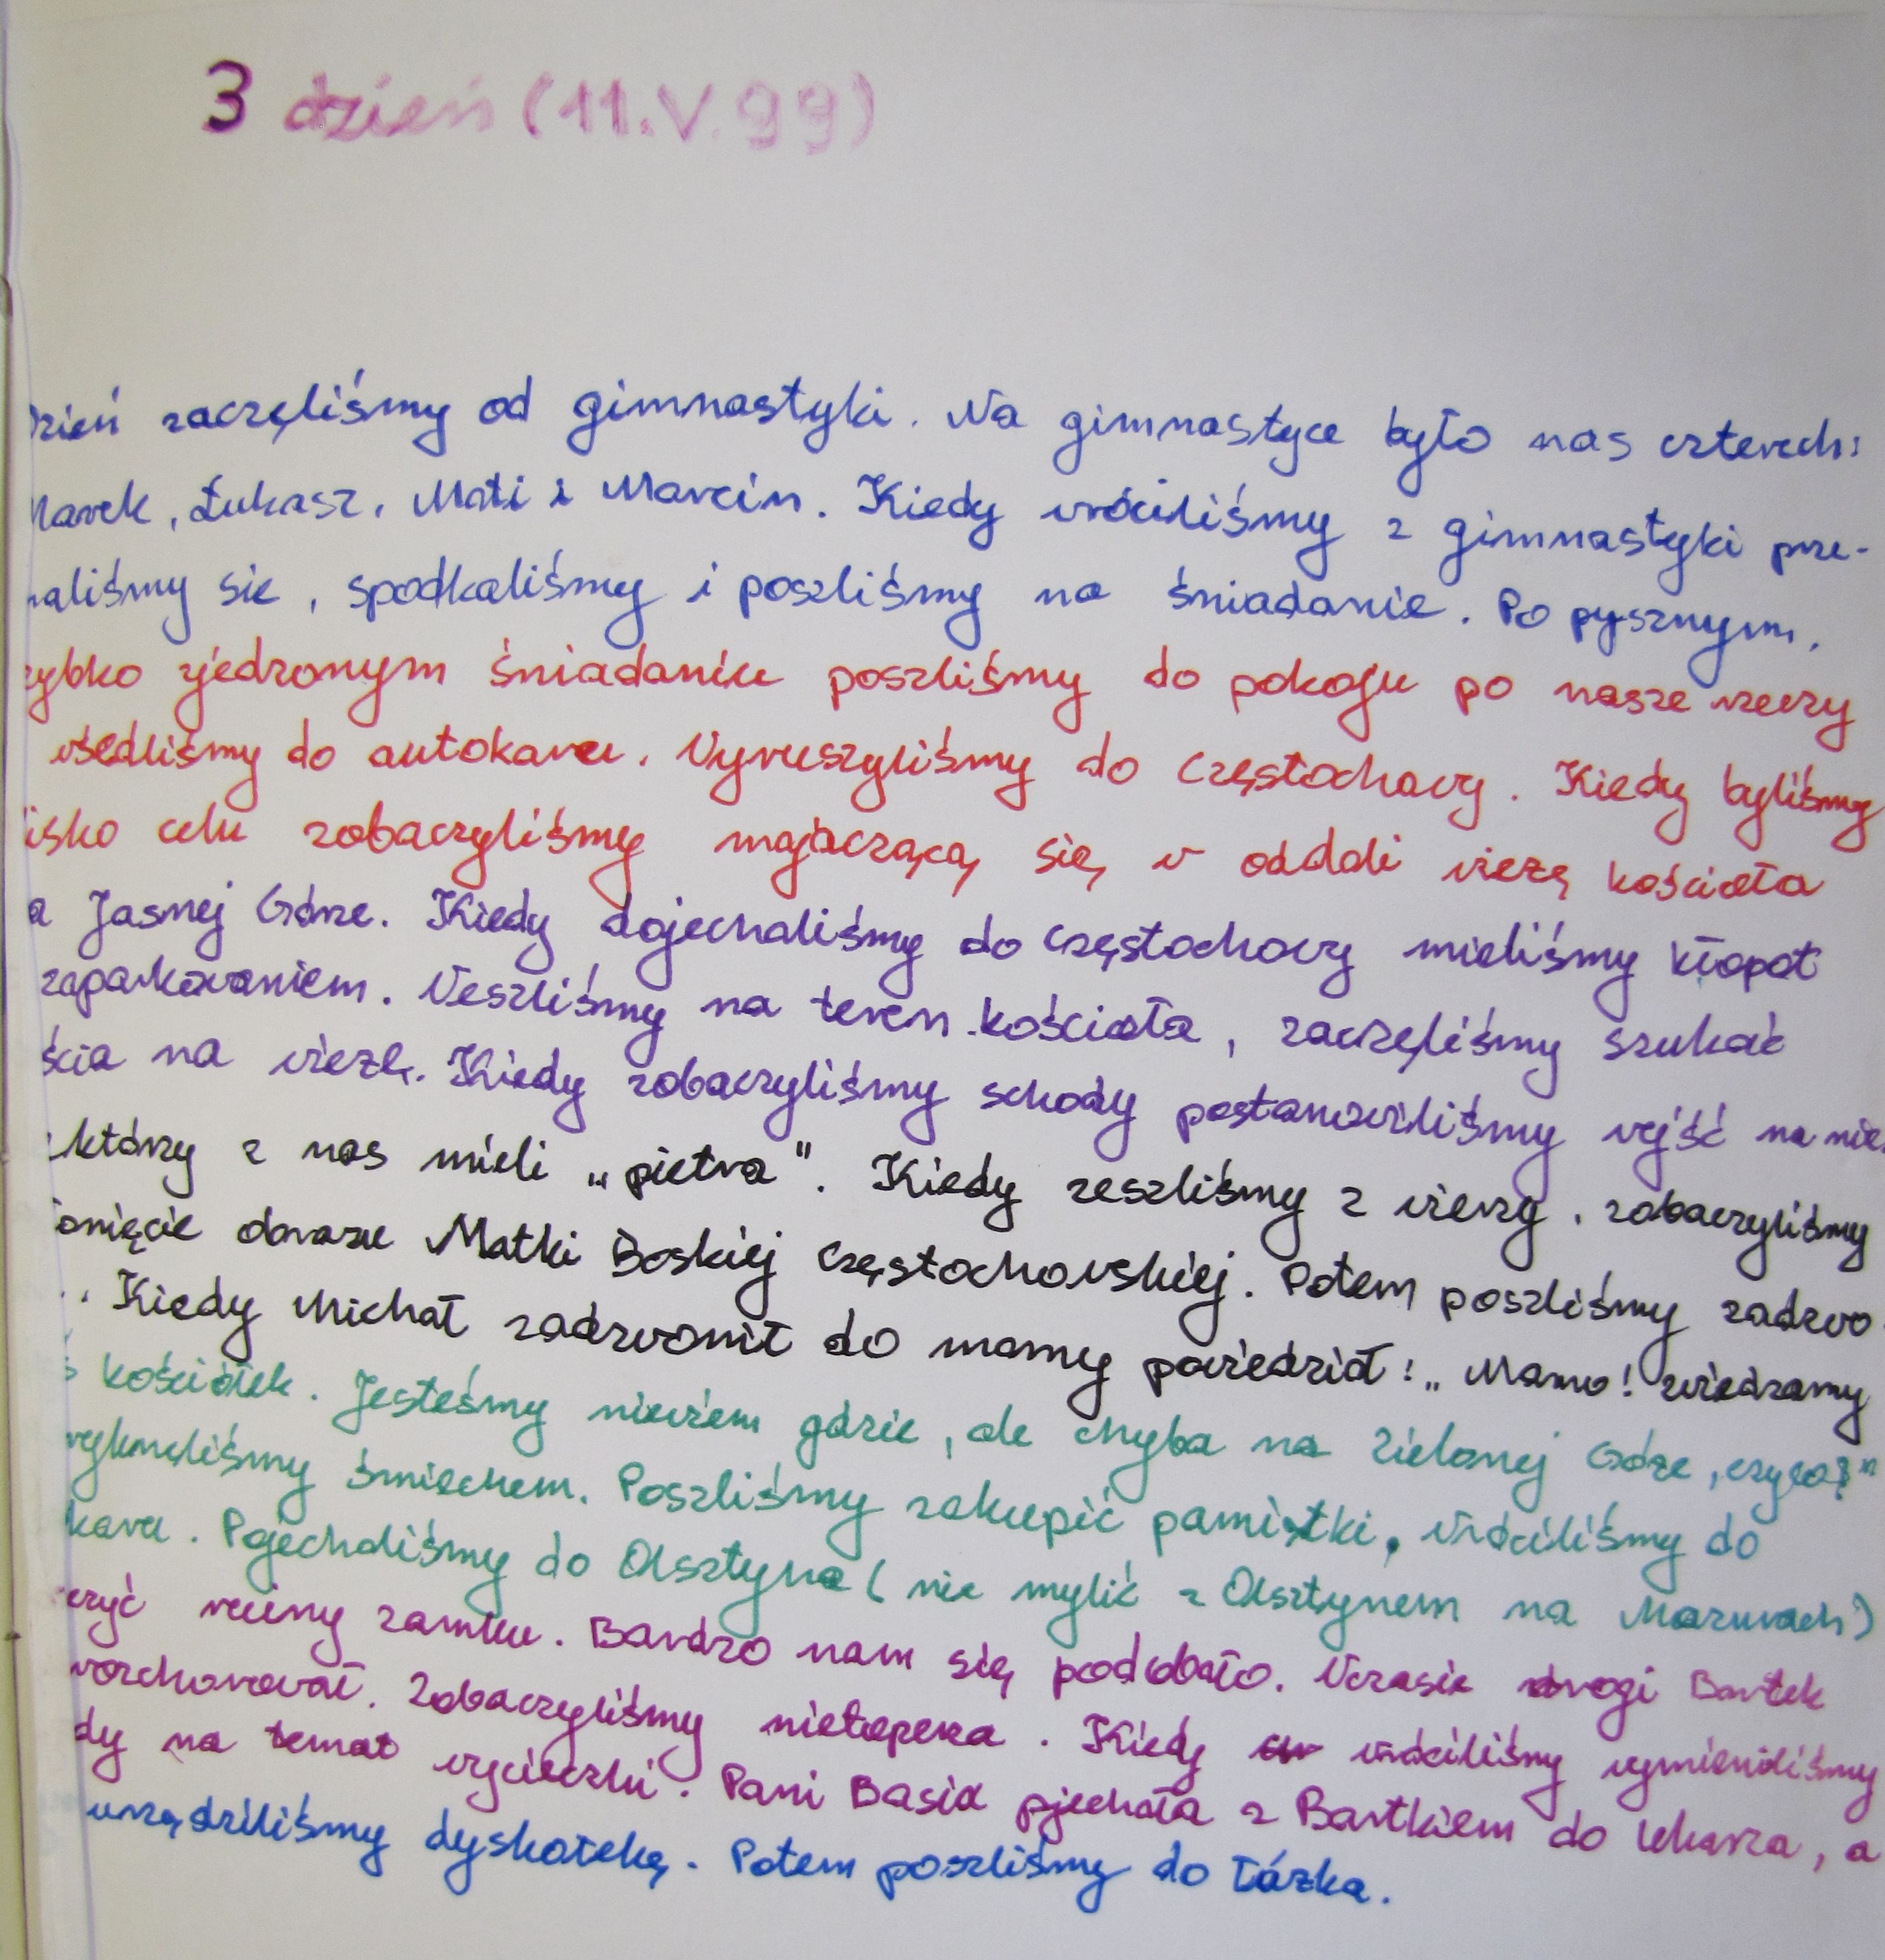 3 dzień (11.V.99)
Dzień zaczęliśmy od gimnastyki. Na gimnastyce było nas czterech:
Marek, Łukasz, Mati i Marcin. Kiedy wróciliśmy z gimnastyki prze-
haliśmy sie, spodkaliśmy i poszliśmy na śniadanie. Po pysznym,
zybko zjedzonym śniadaniu poszliśmy do pokoju po nasze rzeczy
wśedliśmy do autokaru. Wyruszyliśmy do Częstochowy. Kiedy byliśmy
isko celu zobaczyliśmy majaczącą się w oddali wieżę kościoła
a Jasnej Górze. Kiedy dojechaliśmy do Częstochowy mieliśmy kłopot
zaparkowaniem. Weszliśmy na teren kościoła, zaczęliśmy szukać
ścia na wieżę. Kiedy zobaczyliśmy schody postanowiliśmy wejść na nie.
którzy z nas mieli „pietra". Kiedy zeszliśmy z wieży, zobaczyliśmy
onięcie obrazu Matki Boskiej Częstochowskiej. Potem poszliśmy zadzwo
. Kiedy Michał zadzwonił do mamy powiedział: „Mamo! zwiedzamy
ś kościółek. Jesteśmy niewiem gdzie, ale chyba na Zielonej Górze, czy co?"
wykneliśmy śmiechem. Poszliśmy zakupić pamiątki, wróciliśmy do
karu. Pojechaliśmy do Olsztyna (nie mylić z Olsztynem na Mazurach)
czyć ruiny zamku. Bardzo nam się podobało. Wczasie drogi Bartek
rozchorował. Zobaczyliśmy nietoperza. Kiedy wróciliśmy wymieniliśmy
dy na temat wycieczki. Pani Basia pjechała z Bartkiem do lekarza, a
urządziliśmy dyskotekę. Potem poszliśmy do łóżka.